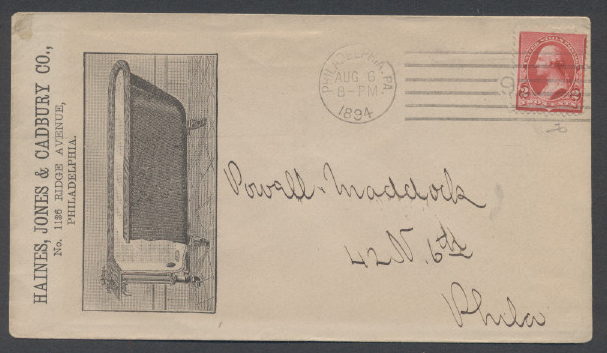 HAINES, JONES & CADBURY CO.,
No. 1136 RIDGE AVENUE,
PHILADELPHIA.
PHILADELPHIA, PA.
AUG 6
8-PM
1894
Powell & Maddock
42 N. 6th
Phila